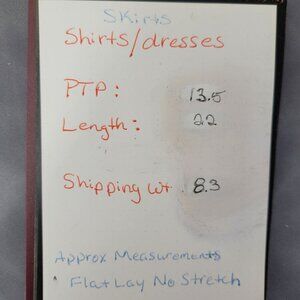 Skirts
Shirts/dresses
PTP: 13.5
Length: 22
Shipping wt. 8.3
Approx Measurements
Flat Lay No Stretch